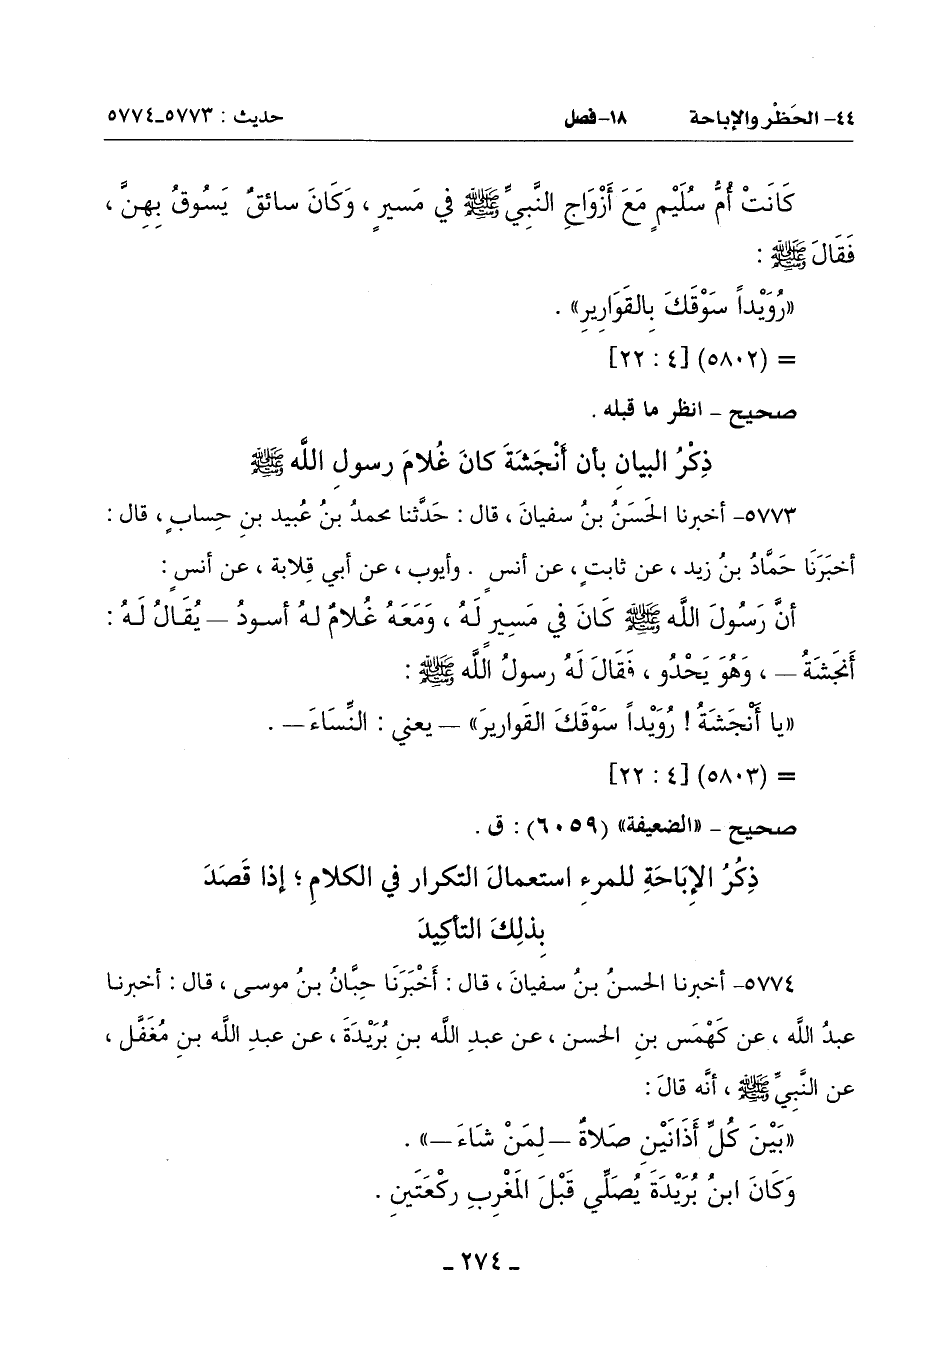 ٤٤- الحَظْر والإباحة ١٨- فصل حديث : ٥٧٧٣-٥٧٧٤
كَانَتْ أُمُّ سُلَيْمٍ مَعَ أَزْوَاجِ النَّبِيِّ ﷺ فِي مَسيرٍ ، وَكَانَ سائقٌ يَسُوقُ بِهِنَّ ،
فَقَالَ ﷺ :
«رُوَيْداً سَوْقَكَ بِالقَوَارِيرِ» .
= (٥٨٠٢) [٤ : ٢٢]
صحيح - انظر ما قبله .
ذِكْرُ البيانِ بأن أَنْجَشَةَ كانَ غُلامَ رسولِ اللَّه ﷺ
٥٧٧٣- أخبرنا الحَسَنُ بنُ سفيانَ ، قال : حَدَّثنا محمدُ بنُ عُبيد بنِ حِسابٍ ، قال :
أخبَرَنَا حَمَّادُ بنُ زيد ، عن ثابتٍ ، عن أنس . وأيوب ، عن أبي قِلابة ، عن أنسٍ :
أنَّ رَسُولَ اللَّه ﷺ كَانَ فِي مَسِيرٍ لَهُ ، وَمَعَهُ غُلامٌ لهُ أسودُ — يُقَالُ لَهُ :
أَنجَشَةُ — ، وَهُوَ يَحْدُو ، فَقَالَ لَهُ رسولُ اللَّه ﷺ :
«يا أَنْجَشَةُ ! رُوَيْداً سَوْقَكَ القَواريرَ» — يعني : النِّسَاءَ — .
= (٥٨٠٣) [٤ : ٢٢]
صحيح - «الضعيفة» (٦٠٥٩) : ق .
ذِكْرُ الإِبَاحَةِ للمرءِ استعمالَ التكرار في الكلامِ ؛ إذا قَصَدَ
بِذلِكَ التأكِيدَ
٥٧٧٤- أخبرنا الحسنُ بنُ سفيانَ ، قال : أَخْبَرَنَا حِبَّانُ بنُ موسى ، قال : أخبرنا
عبدُ اللَّه ، عن كَهْمَسِ بنِ الحسن ، عن عبدِ اللَّه بنِ بُرَيْدَةَ ، عن عبدِ اللَّه بنِ مُغَفَّل ،
عن النَّبِيِّ ﷺ ، أنَّه قالَ :
«بَيْنَ كُلِّ أَذَانَيْنِ صَلاةٌ — لِمَنْ شَاءَ —» .
وَكَانَ ابنُ بُرَيْدَةَ يُصَلِّي قَبْلَ المَغْرِبِ ركْعَتَينِ .
- ٢٧٤ -